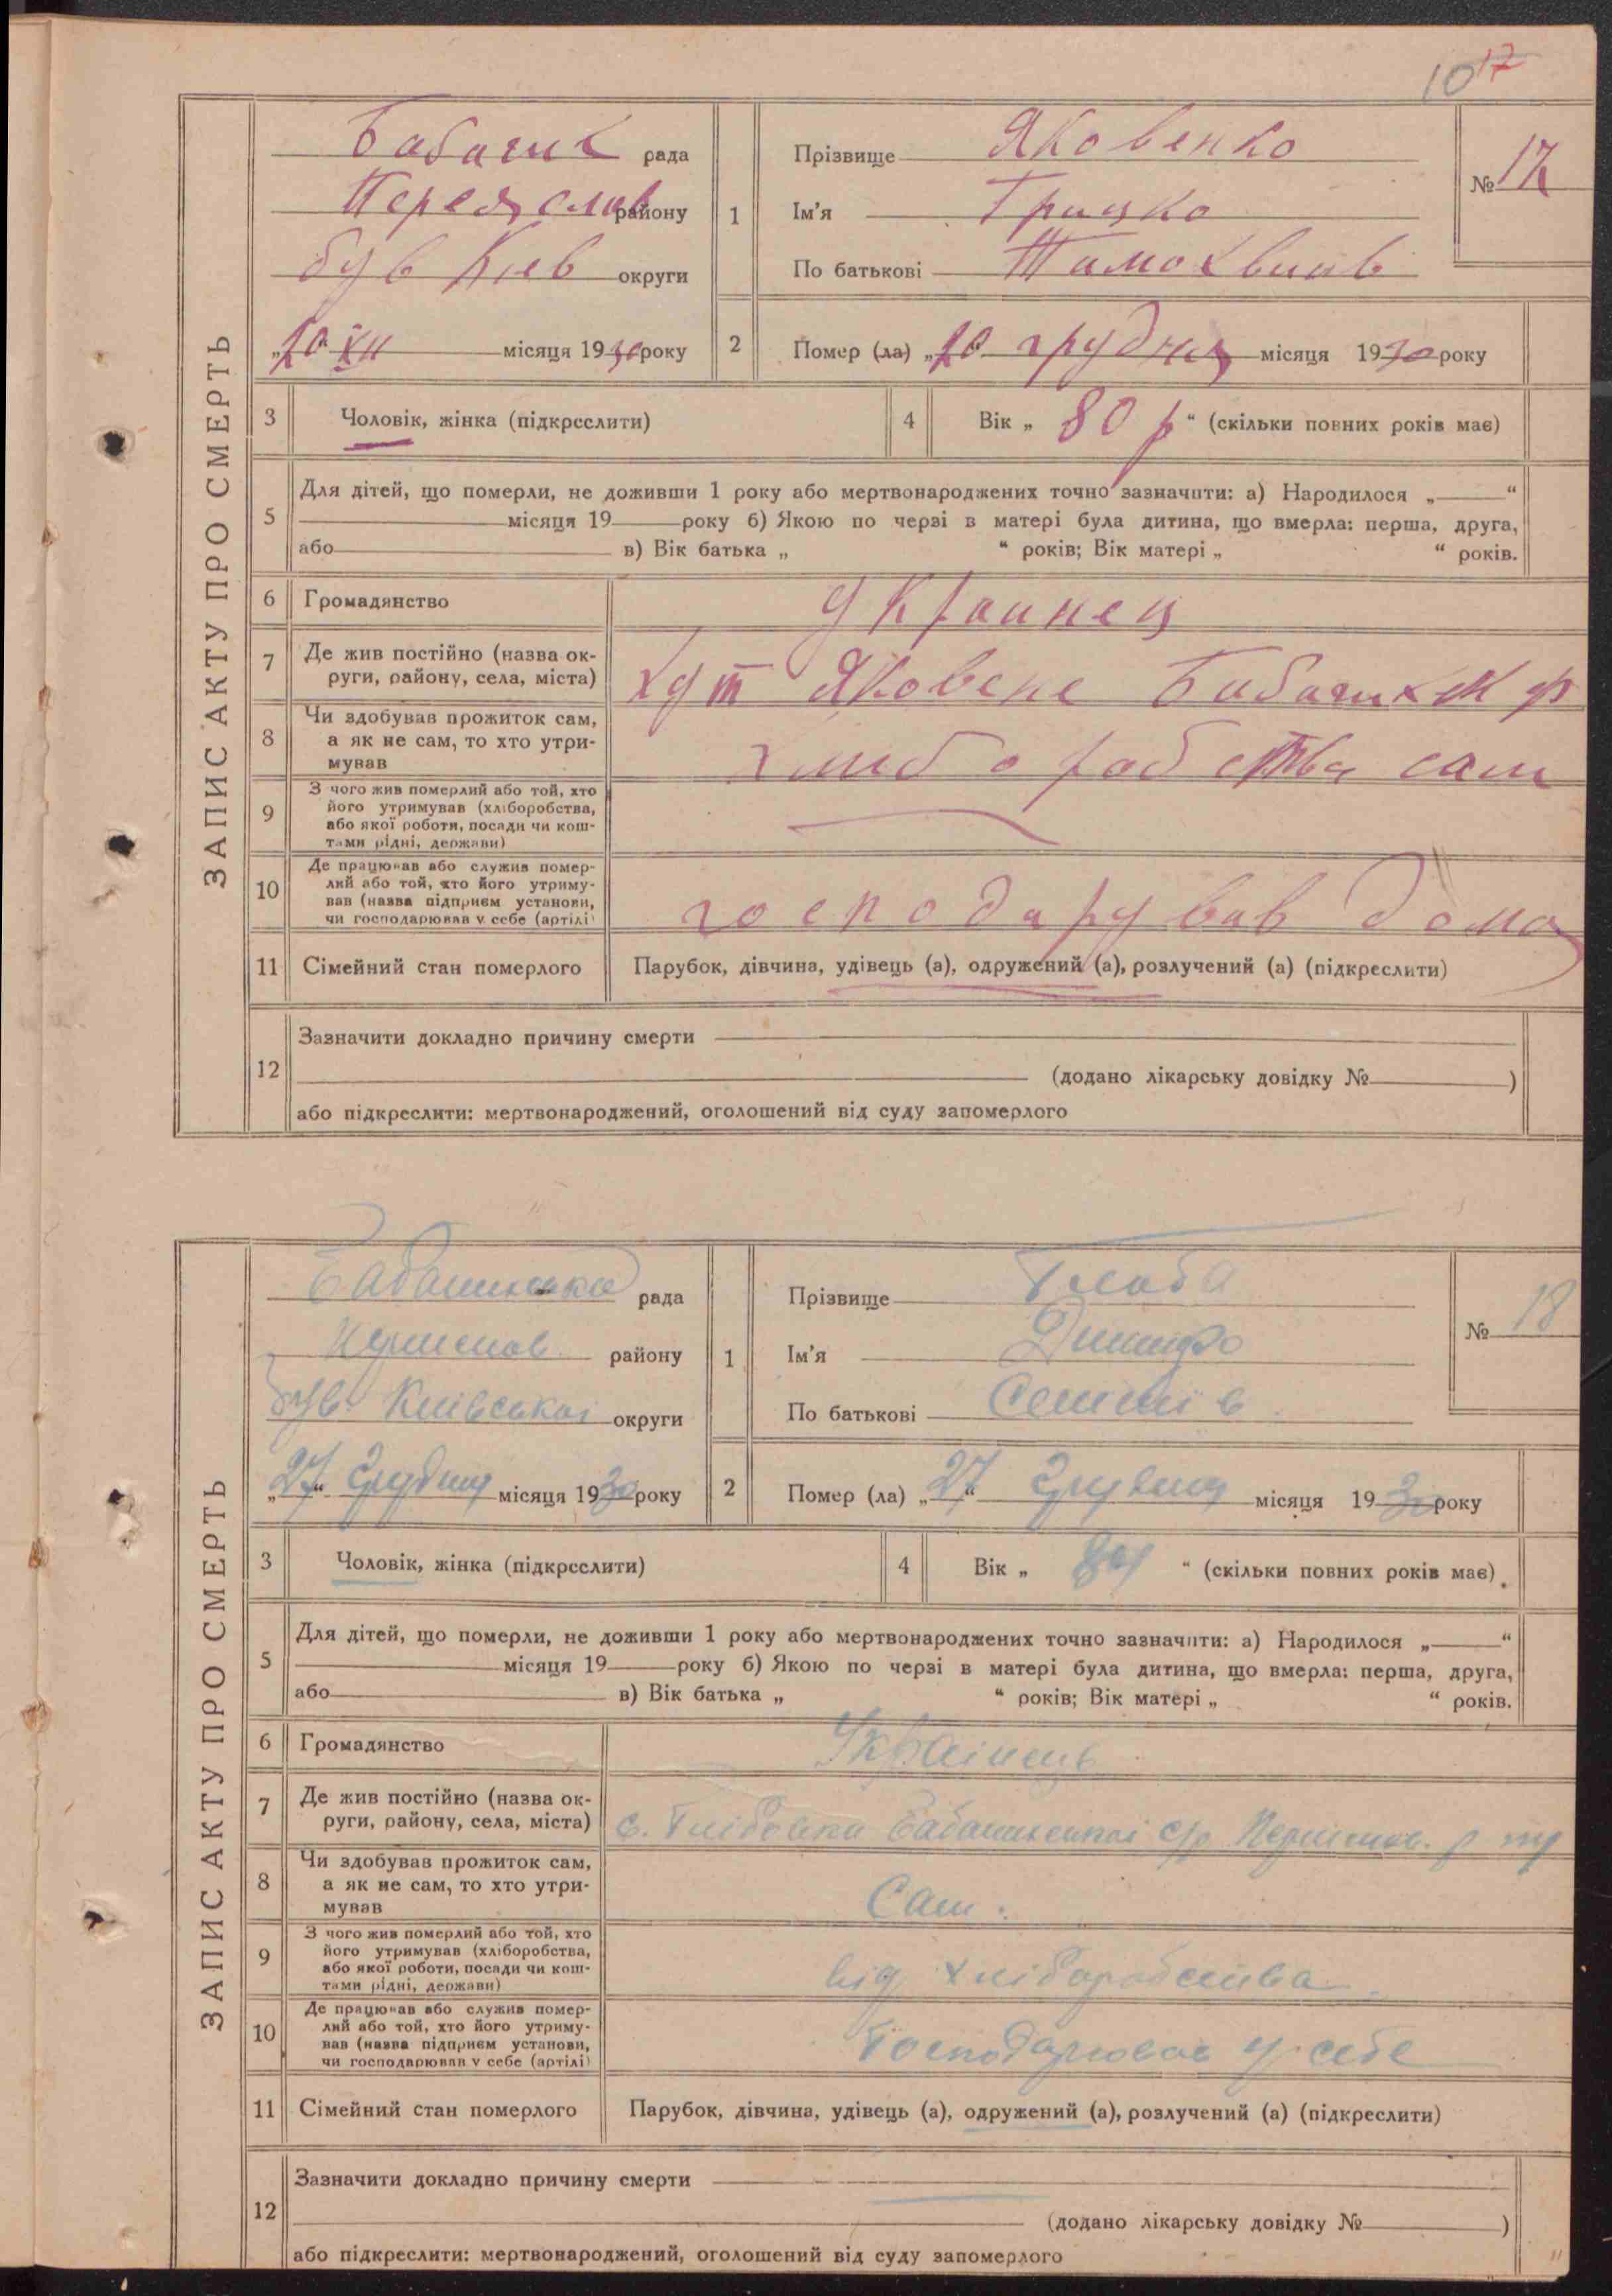 10 17
ЗАПИС АКТУ ПРО СМЕРТЬ
Бабачих рада
Переяслав району
був Киів округи
„10“ XII місяця 1930 року
1
Прізвище Яковенко
Ім'я Грицко
По батькові Тимохвиів
№ 17
2
Помер (ла) „10“ грудня місяця 1930 року
3 Чоловік, жінка (підкреслити)
4 Вік „ 80 р “ (скільки повних років має)
5
Для дітей, що померли, не доживши 1 року або мертвонароджених точно зазначити: а) Народилося „ “
місяця 19 року б) Якою по черзі в матері була дитина, що вмерла: перша, друга,
або в) Вік батька „ “ років; Вік матері „ “ років.
6 Громадянство Украинец
7 Де жив постійно (назва ок-
руги, району, села, міста) хут Яковенк
8 Чи здобував прожиток сам,
а як не сам, то хто утри-
мував хлиборобства сам
9 З чого жив померлий або той, хто
його утримував (хліборобства,
або якої роботи, посади чи кош-
тами рідні, держави)
10 Де працював або служив помер-
лий або той, хто його утриму-
вав (назва підприєм установи,
чи господарював у себе (артілі) господарував дома
11 Сімейний стан померлого Парубок, дівчина, удівець (а), одружений (а), розлучений (а) (підкреслити)
12
Зазначити докладно причину смерти
(додано лікарську довідку № )
або підкреслити: мертвонароджений, оголошений від суду запомерлого
ЗАПИС АКТУ ПРО СМЕРТЬ
рада
району
був. Київської округи
„27“ Грудня місяця 1930 року
1
Прізвище
Ім'я
По батькові
№ 18
2
Помер (ла) „27“ Грудня місяця 1930 року
3 Чоловік, жінка (підкреслити)
4 Вік „ “ (скільки повних років має)
5
Для дітей, що померли, не доживши 1 року або мертвонароджених точно зазначити: а) Народилося „ “
місяця 19 року б) Якою по черзі в матері була дитина, що вмерла: перша, друга,
або в) Вік батька „ “ років; Вік матері „ “ років.
6 Громадянство Українець
7 Де жив постійно (назва ок-
руги, району, села, міста) с. с/р
8 Чи здобував прожиток сам,
а як не сам, то хто утри-
мував Сам.
9 З чого жив померлий або той, хто
його утримував (хліборобства,
або якої роботи, посади чи кош-
тами рідні, держави) від хліборобства
10 Де працював або служив помер-
лий або той, хто його утриму-
вав (назва підприєм установи,
чи господарював у себе (артілі) Господарював у себе
11 Сімейний стан померлого Парубок, дівчина, удівець (а), одружений (а), розлучений (а) (підкреслити)
12
Зазначити докладно причину смерти
(додано лікарську довідку № )
або підкреслити: мертвонароджений, оголошений від суду запомерлого